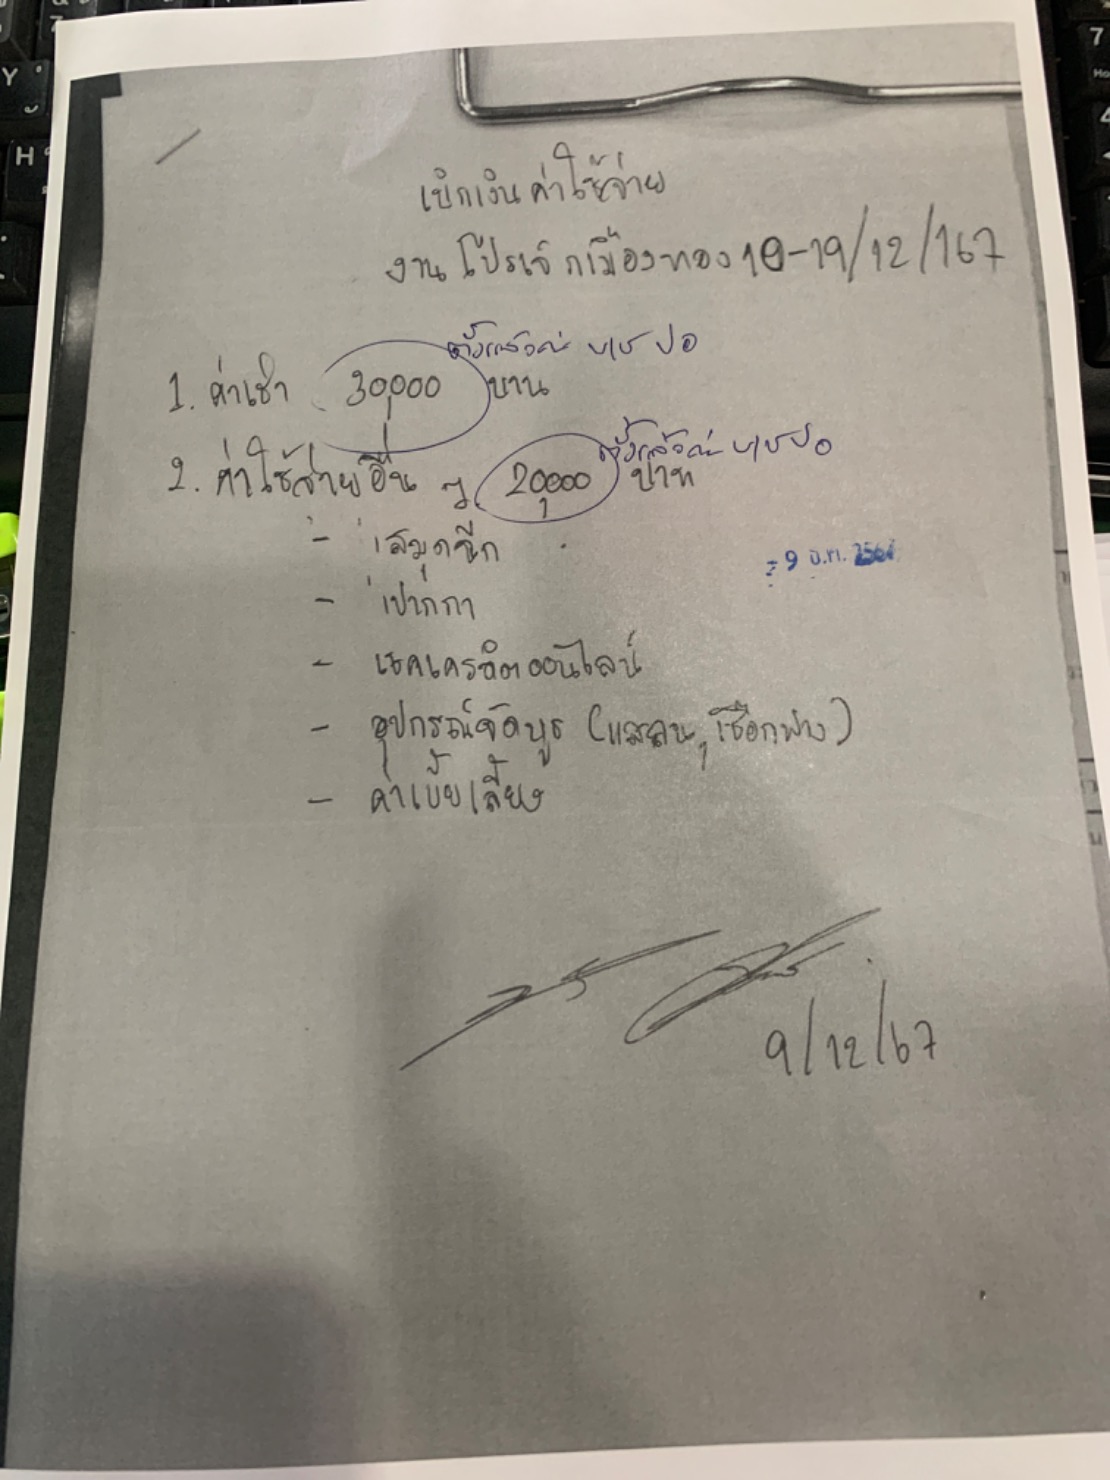 เบิกเงินค่าใช้จ่าย
งานโปรเจ็กเมืองทอง 10-19/12/167
1. ค่าเช่า 30,000 บาท
ตั้งแล้วค่ะ บ/ช ปอ
2. ค่าใช้จ่ายอื่น ๆ 20,000 บาท
ตั้งแล้วค่ะ บ/ช ปอ
- สมุดฉีก
- 9 ธ.ค. 256
- ปากกา
- เชคเครดิตออนไลน์
- อุปกรณ์จัดบูธ (แสลน, เชือกฟาง)
- ค่าเบี้ยเลี้ยง
9/12/67